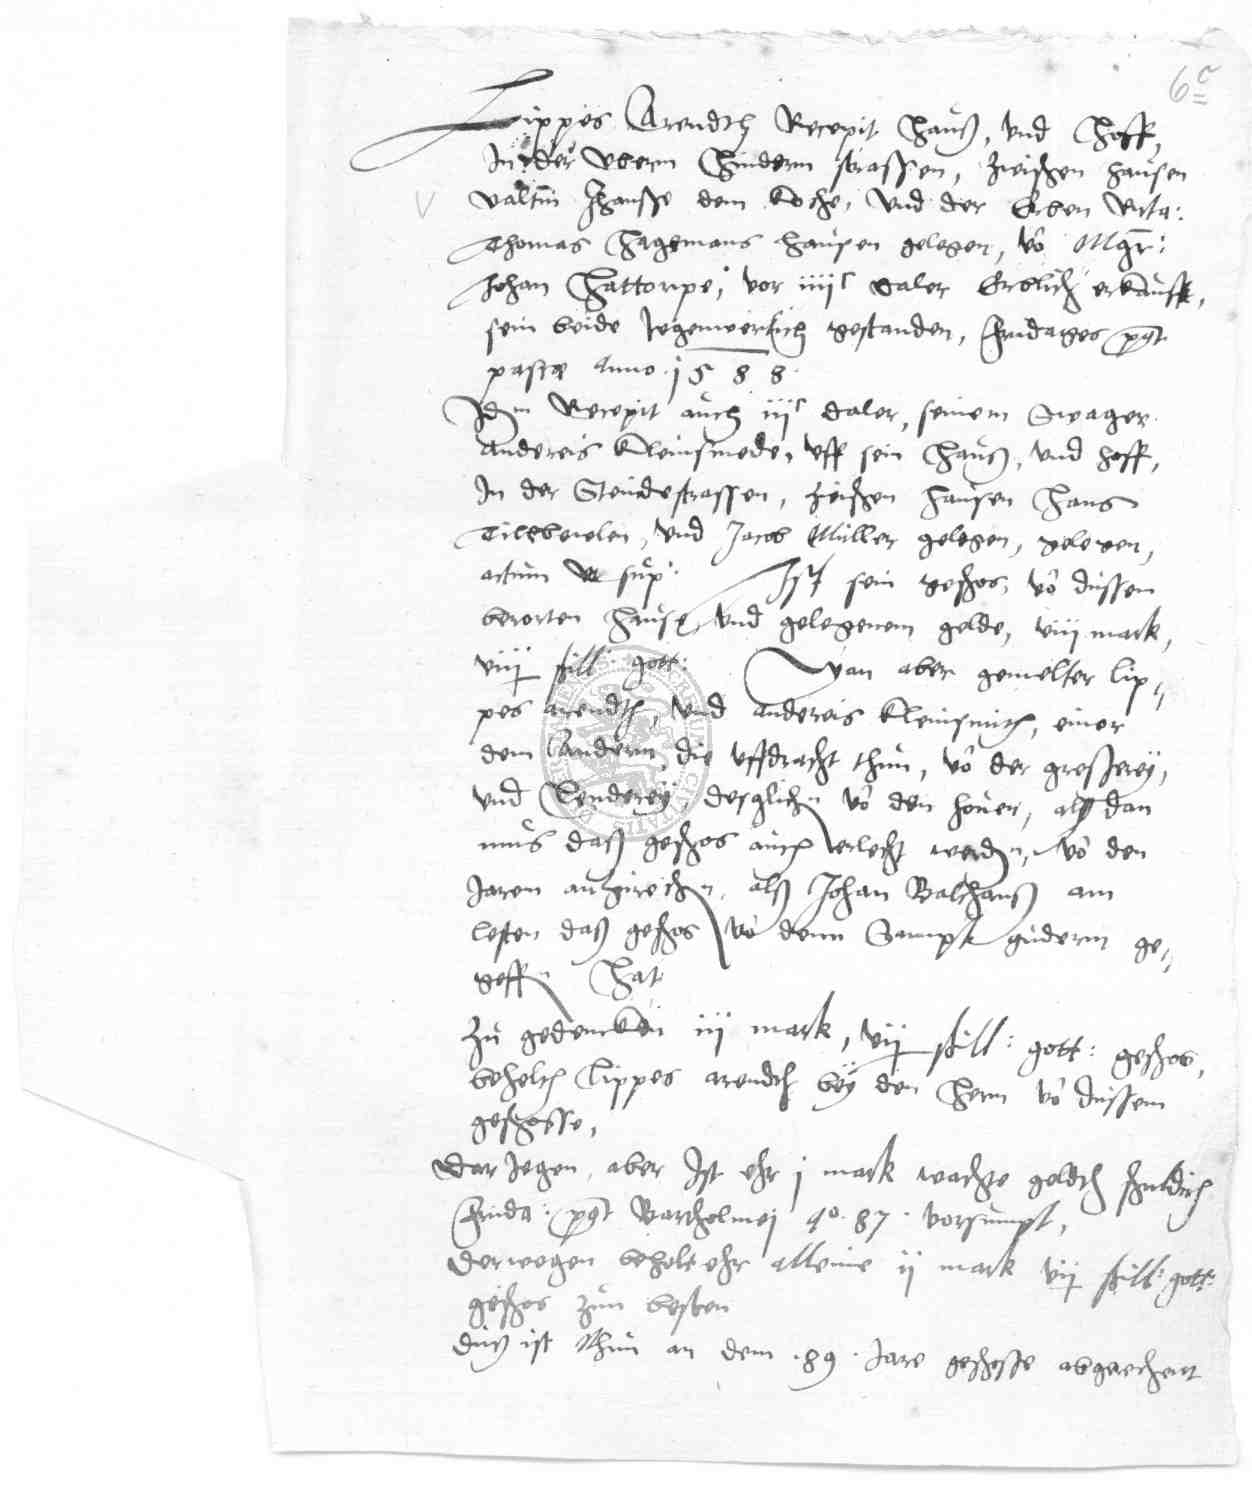 6c
Lippes Arendth Recepit hauß, vnd hoff,
In der Obern hindern strassen, zwischen hausen
Valtin Hansse dem koche, vnd der Erben
Thomas Hagemans hausen gelegen, vo Mgr:
Johan Hattorpe, vor iiijc daler Erblich erkaufft,
sein beide Jegenwertich gestanden, fridages post
pasce Anno . 1588.
Idem Recepit auch iijc daler, seinem Swager
Andereis Kleinsmede, vff sein hauß, vnd hoff,
In der Steindestrassen, zwischen hausen Hans
vnd Jacob Müller gelegen, gelegen,
actum ut sup: Ist sein geschos, vo dussem
berorten hause, vnd gelegenem gelde, viij mark,
viij schill: gott: Wan aber gemelter Lip=
pes arendth, vnd andereis kleinsmith, einer
dem Andern, die vffdracht thun, vo der
vnd Lenderey desglichen vo den houen, alß dan
mus daß geschos auch erlecht werden, vo den
Jaren antzirechen, alß Johan Balthauß am
lesten daß geschos vo denn Sampt gudern ge=
geffen hat
Zu gedencken iij mark, vij schill: gott: geschos,
behelth Lippes arendth bey den Hern vo dussem
geschosse,
Dar Jegen, aber Ist ehr j mark wachge geldth schuldich
frida: post Bartholmej ao. 87. vorsumpt,
Derwegen behelt ehr alleine ij mark vij schill: gott:
geschos zum besten
Duß ist Ihm an dem .89. Jare geschosse abgerechent